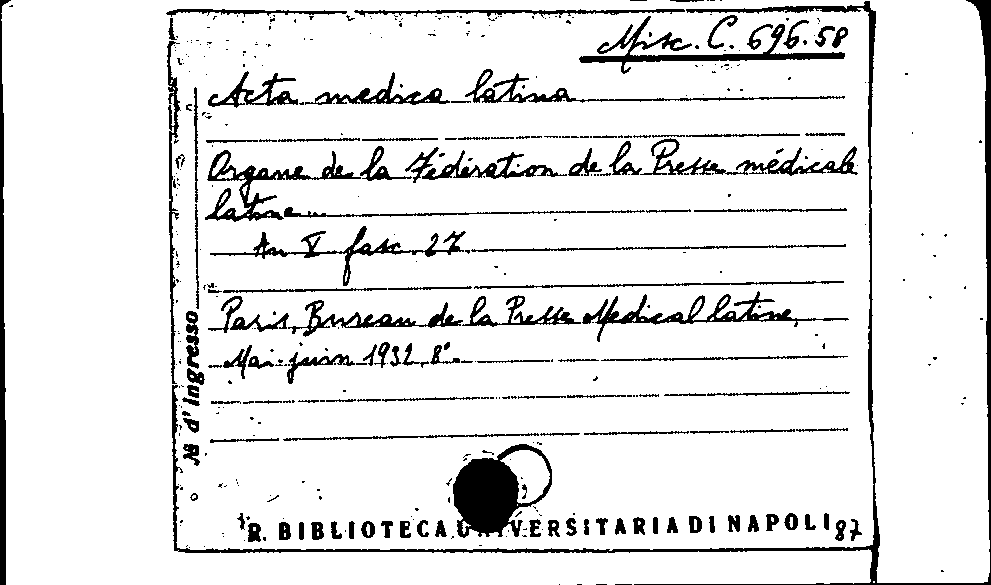 Misc. C. 696.58
Acta medica latina
Organe de la Fédération de la Presse médicale
latine...
An V fasc. 27
Paris, Bureau de la Presse Medical latine,
Mai-juin 1932, 8°.
No d'ingresso
R. BIBLIOTECA UNIVERSITARIA DI NAPOLI
87